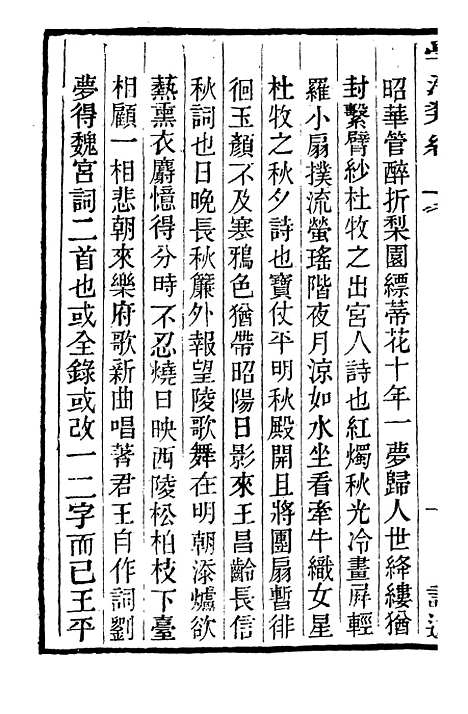 昭華管醉折梨園縹蒂花十年一夢歸人世絳縷猶
封繫臂紗杜牧之出宮人詩也紅燭秋光冷畫屏輕
羅小扇撲流螢瑤階夜月涼如水坐看牽牛織女星
杜牧之秋夕詩也寶仗平明秋殿開且將團扇暫徘
徊玉顏不及寒鴉色猶帶昭陽日影來王昌齡長信
秋詞也日晚長秋簾外報望陵歌舞在明朝添爐欲
爇熏衣麝憶得分時不忍燒日映西陵松柏枝下臺
相顧一相悲朝來樂府歌新曲唱著君王自作詞劉
夢得魏宮詞二首也或全錄或改一二字而已王平